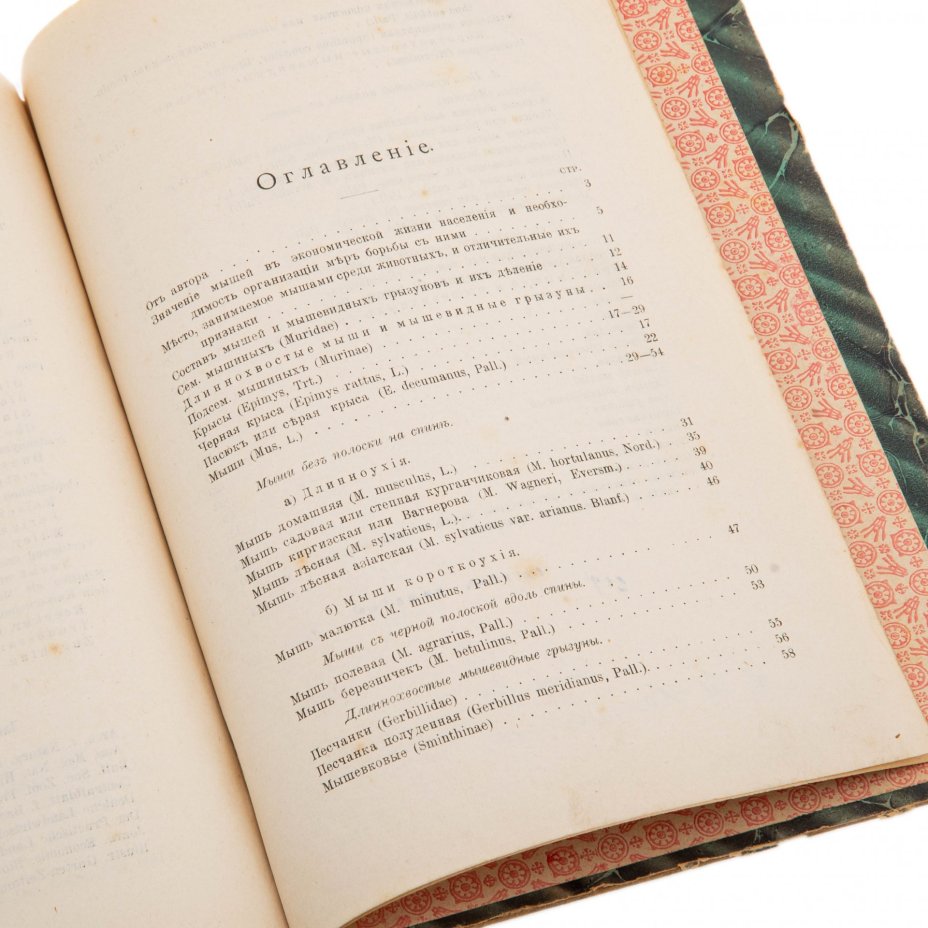 Оглавленіе.
стр.
Отъ автора . . . 3
Значеніе мышей въ экономической жизни населенія и необхо-
димость организаціи мѣръ борьбы съ ними . . . 5
Мѣсто, занимаемое мышами среди животныхъ, и отличительные ихъ
признаки . . . 11
Составъ мышей и мышевидныхъ грызуновъ и ихъ дѣленіе . . . 12
Сем. мышиныхъ (Muridae) . . . 14
Длиннохвостые мыши и мышевидные грызуны . . . 16
Подсем. мышиныхъ (Murinae) . . . —
Крысы (Epimys, Trt.) . . . 17—29
Черная крыса (Epimys rattus, L.) . . . 17
Пасюкъ или сѣрая крыса (E. decumanus, Pall.) . . . 22
Мыши (Mus, L.) . . . 29—54
Мыши безъ полоски на спинѣ.
а) Длинноухія.
Мышь домашняя (M. musculus, L.) . . . 31
Мышь садовая или степная курганчиковая (M. hortulanus, Nord.) . . . 35
Мышь киргизская или Вагнерова (M. Wagneri, Eversm.) . . . 39
Мышь лѣсная (M. sylvaticus, L.) . . . 40
Мышь лѣсная азіатская (M. sylvaticus var. arianus. Blanf.) . . . 46
б) Мыши короткоухія.
Мышь малютка (M. minutus, Pall.) . . . 47
Мыши съ черной полоской вдоль спины.
Мышь полевая (M. agrarius, Pall.) . . . 50
Мышь березничекъ (M. betulinus, Pall.) . . . 53
Длиннохвостые мышевидные грызуны.
Песчанки (Gerbillidae) . . . 55
Песчанка полуденная (Gerbillus meridianus, Pall.) . . . 56
Мышевковые (Sminthinae) . . . 58